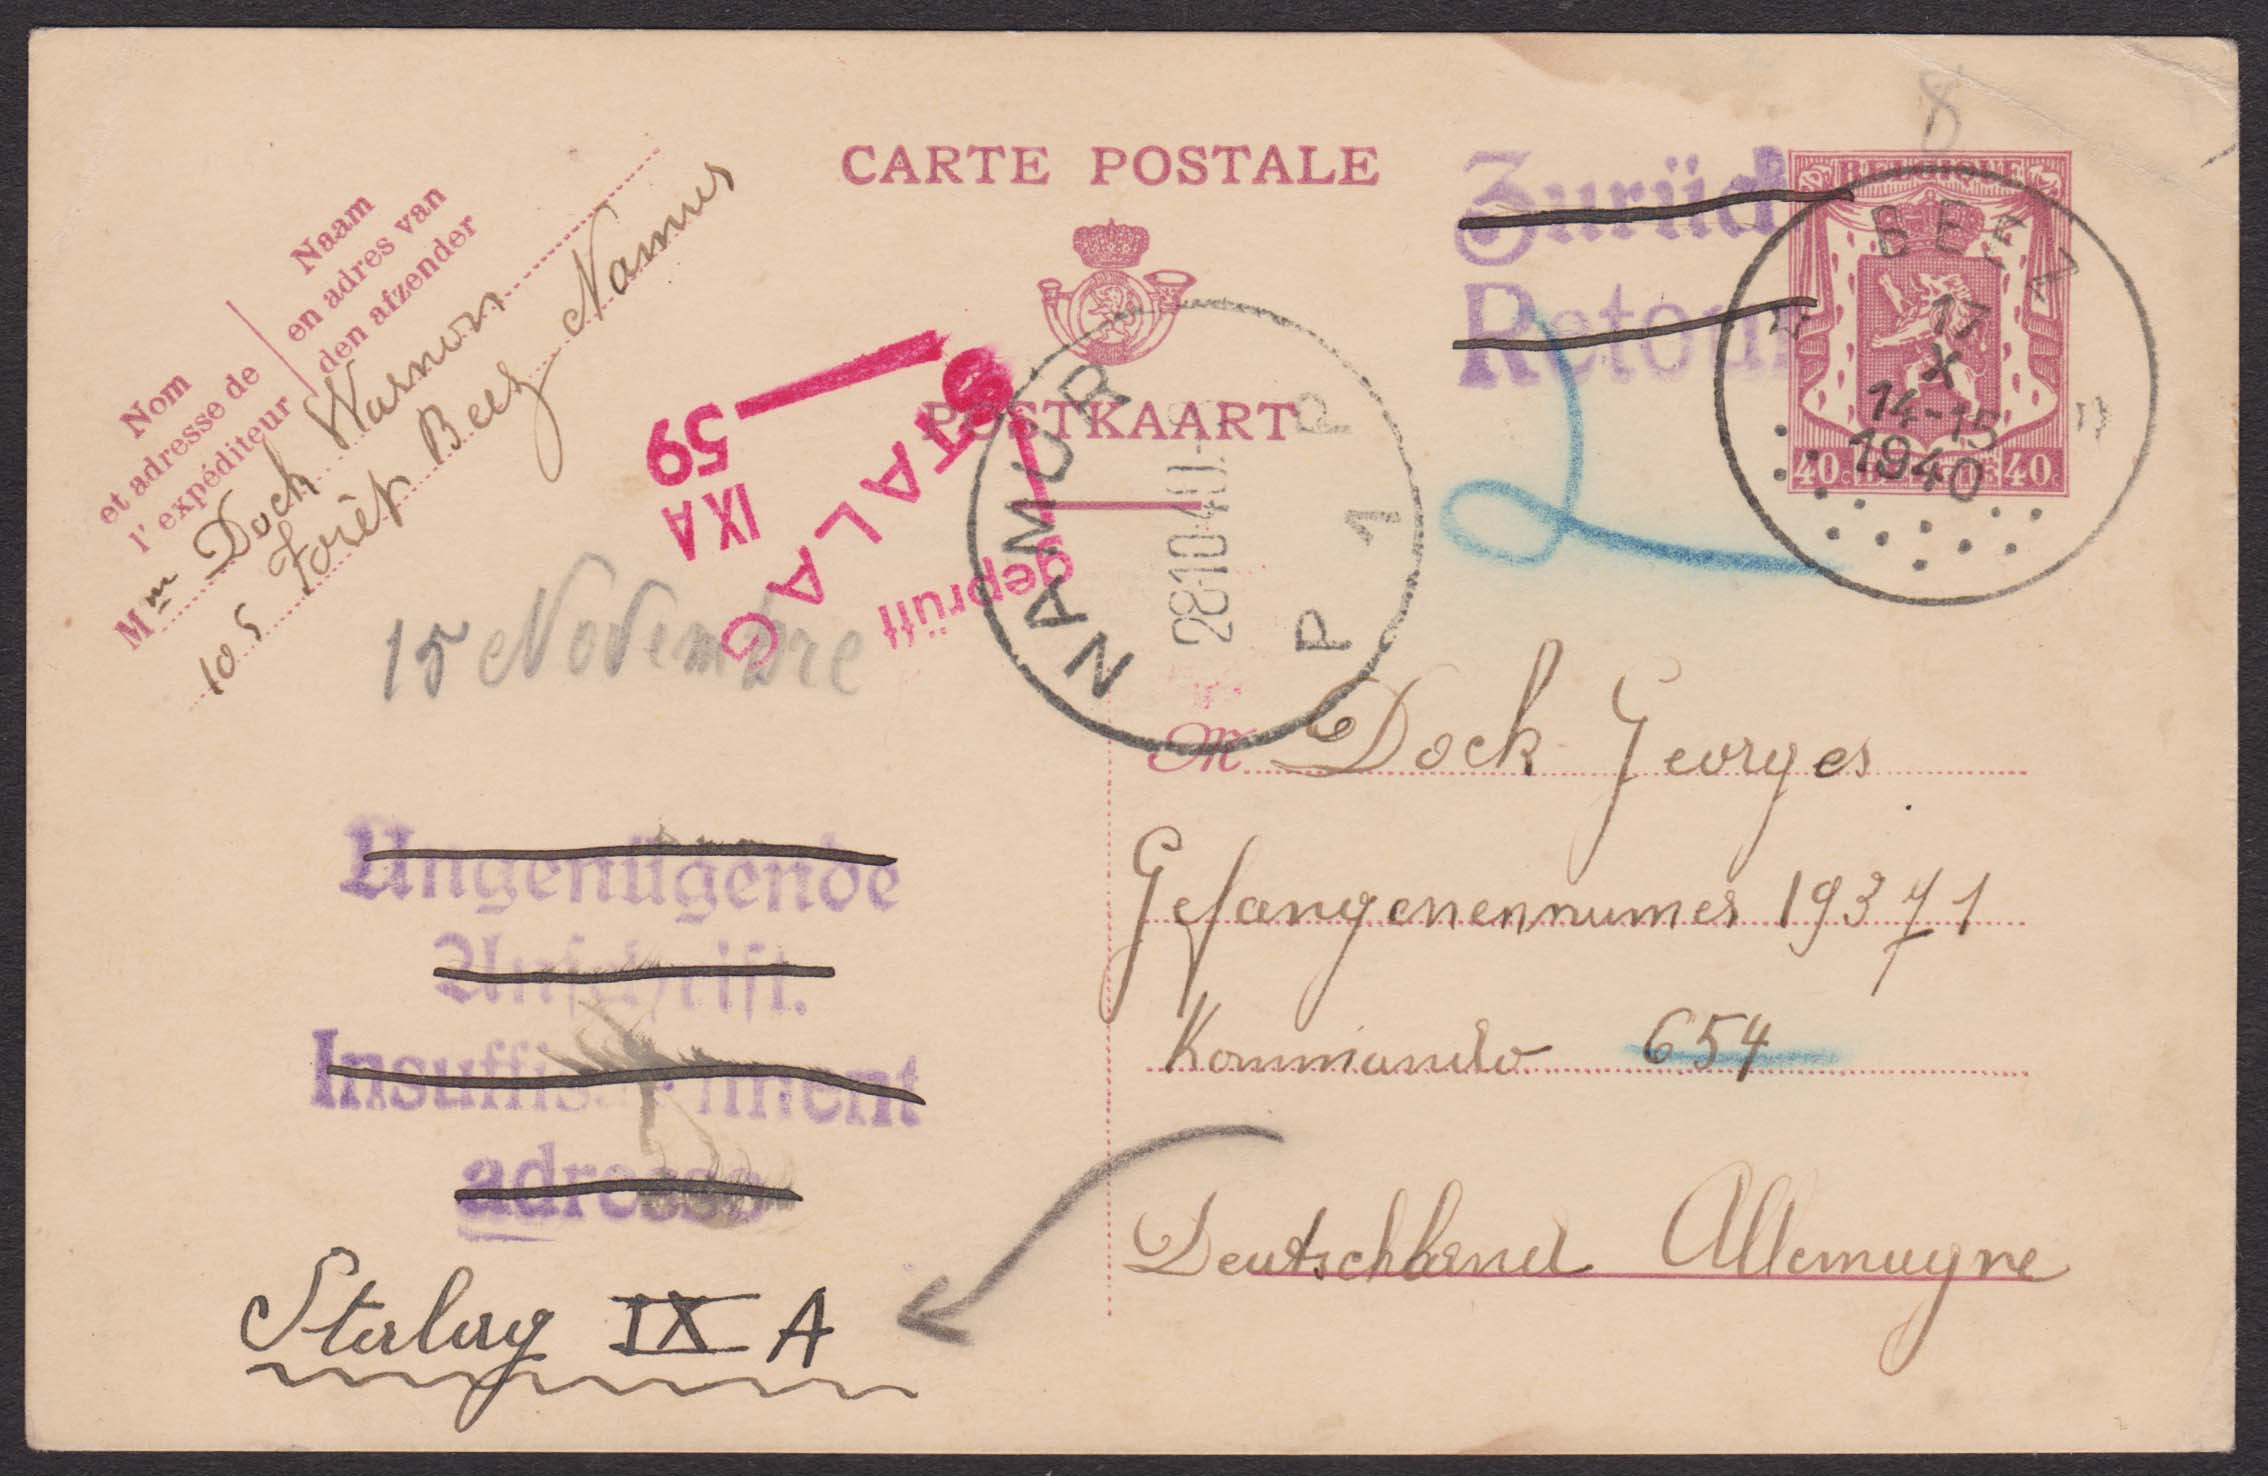 CARTE POSTALE
POSTKAART
Naam
en adres van
den afzender
Nom
et adresse de
l'expéditeur
Mm Dock Warnon
105 Forêt Beez Namur
Zurück
Retour
BELGIQUE
40c BELGIË 40c
BEEZ
17
X
14-15
1940
NAMUR
281040
P P
1
P
STALAG
IX A
59
geprüft
2
8
15 Novembre
M Dock Georges
Gefangenennumer 19371
Kommando 654
Deutschland Allemagne
Ungenügende
Anschrift.
adresse
Stalag IX A